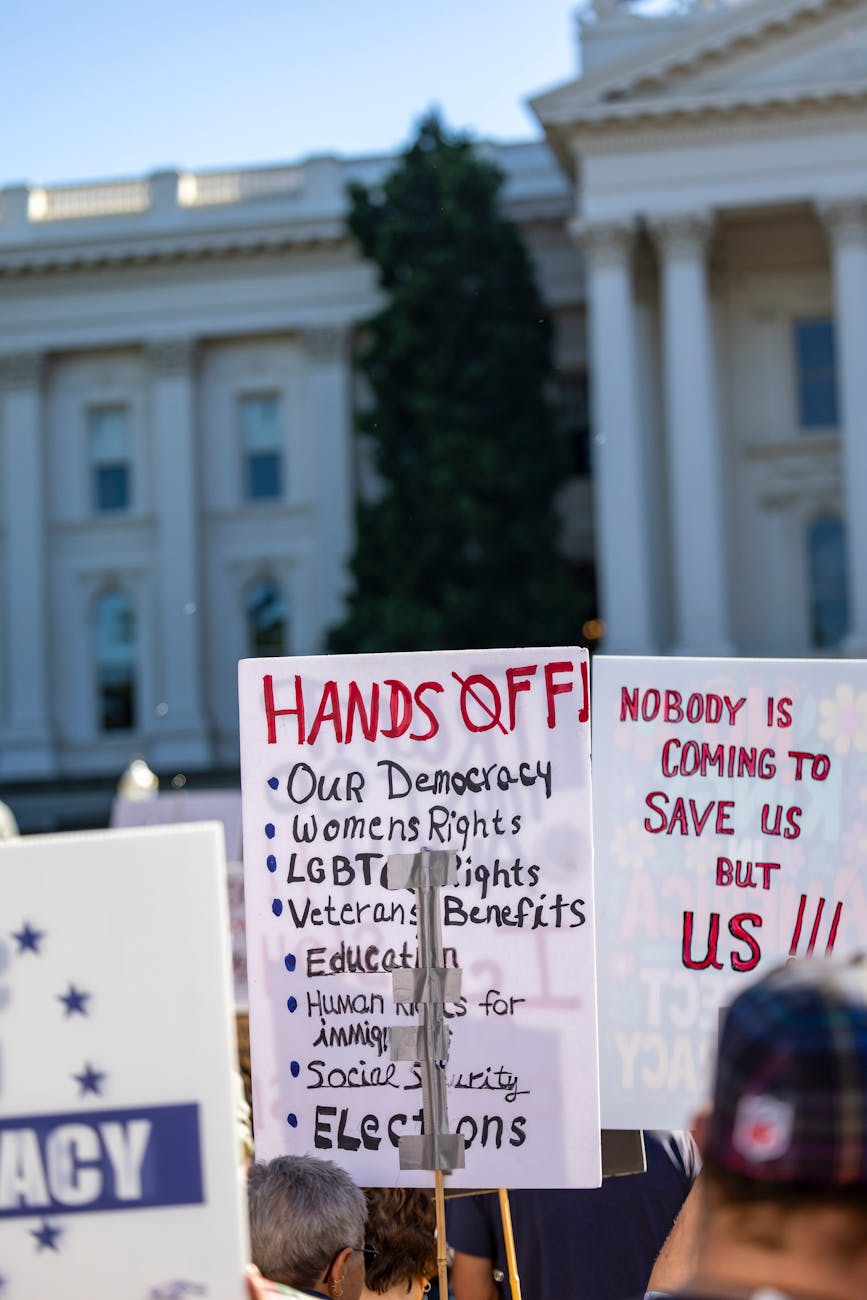 HANDS OFF!
• OUR Democracy
• Womens Rights
• LGBTQ Rights
• Veterans Benefits
• Education
• Human Rights for
immig
• Social Security
• ELections
NOBODY IS
COMING TO
SAVE US
BUT
US !!!
ACY